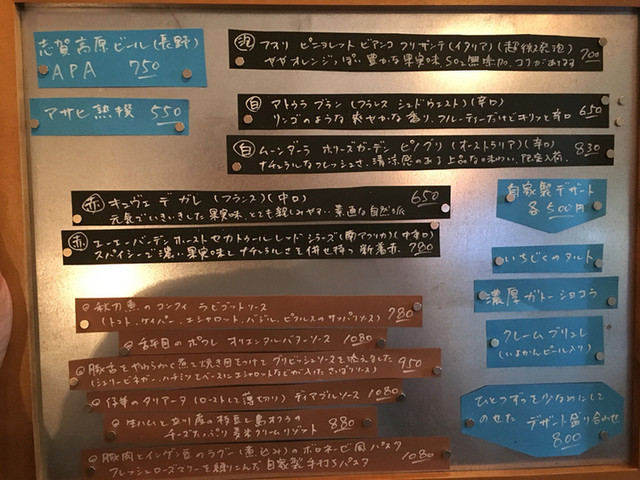 志賀高原ビール(長野)
APA 750
アサヒ熟撰 550
泡 フスリ ピニョレット ビアンコ フリザンテ(イタリア)(超微発泡)
ややオレンジっぽく、豊かな果実味 SO2無添加、コクがあります 700
白 アトゥラ ブラン(フランス シュドウエスト)(辛口)
リンゴのような爽やかな香り、フルーティーだけどキリッと辛口 650
白 ムーンダーラ ホリーズガーデン ピノグリ(オーストラリア)(辛口)
ナチュラルなフレッシュさ、清涼感のある上品な味わい。限定入荷。 830
赤 キュヴェ デ ガレ(フランス)(中口) 650
元気でいきいきした果実味、とても親しみやすい素直な自然派
赤 エーエーバーデンホースト セカトゥール レッド シラーズ(南アフリカ)(中辛口)
スパイシーで濃い果実味とナチュラルさを併せ持つ新着赤。780
自家製デザート
各500円
いちじくのタルト
濃厚ガトーショコラ
クレームブリュレ
ひとつずつを少なめにして
のせた デザート盛り合わせ
800
秋刀魚のコンフィ ラビゴットソース
(トマト、ケイパー、エシャロット、バジル、ピクルスのサッパリソース) 780
のポワレ オリエンタルバターソース 1080
豚舌をやわらかく煮て焼き目をつけてグリビッシュソースを添えました
(シェリービネガー、ハチミツをベースにエシャロットなどが入ったさっぱりソース) 950
仔羊のタリアータ(ローストして薄切り) ディアブルソース 1080
生ハムと 産の枝豆と島オクラの
チーズたっぷり 玄米クリームリゾット 880
豚肉とインゲン豆のラグー(煮込み)のボロネーゼ風パスタ
フレッシュローズマリーを練りこんだ自家製手打ちパスタ 1080